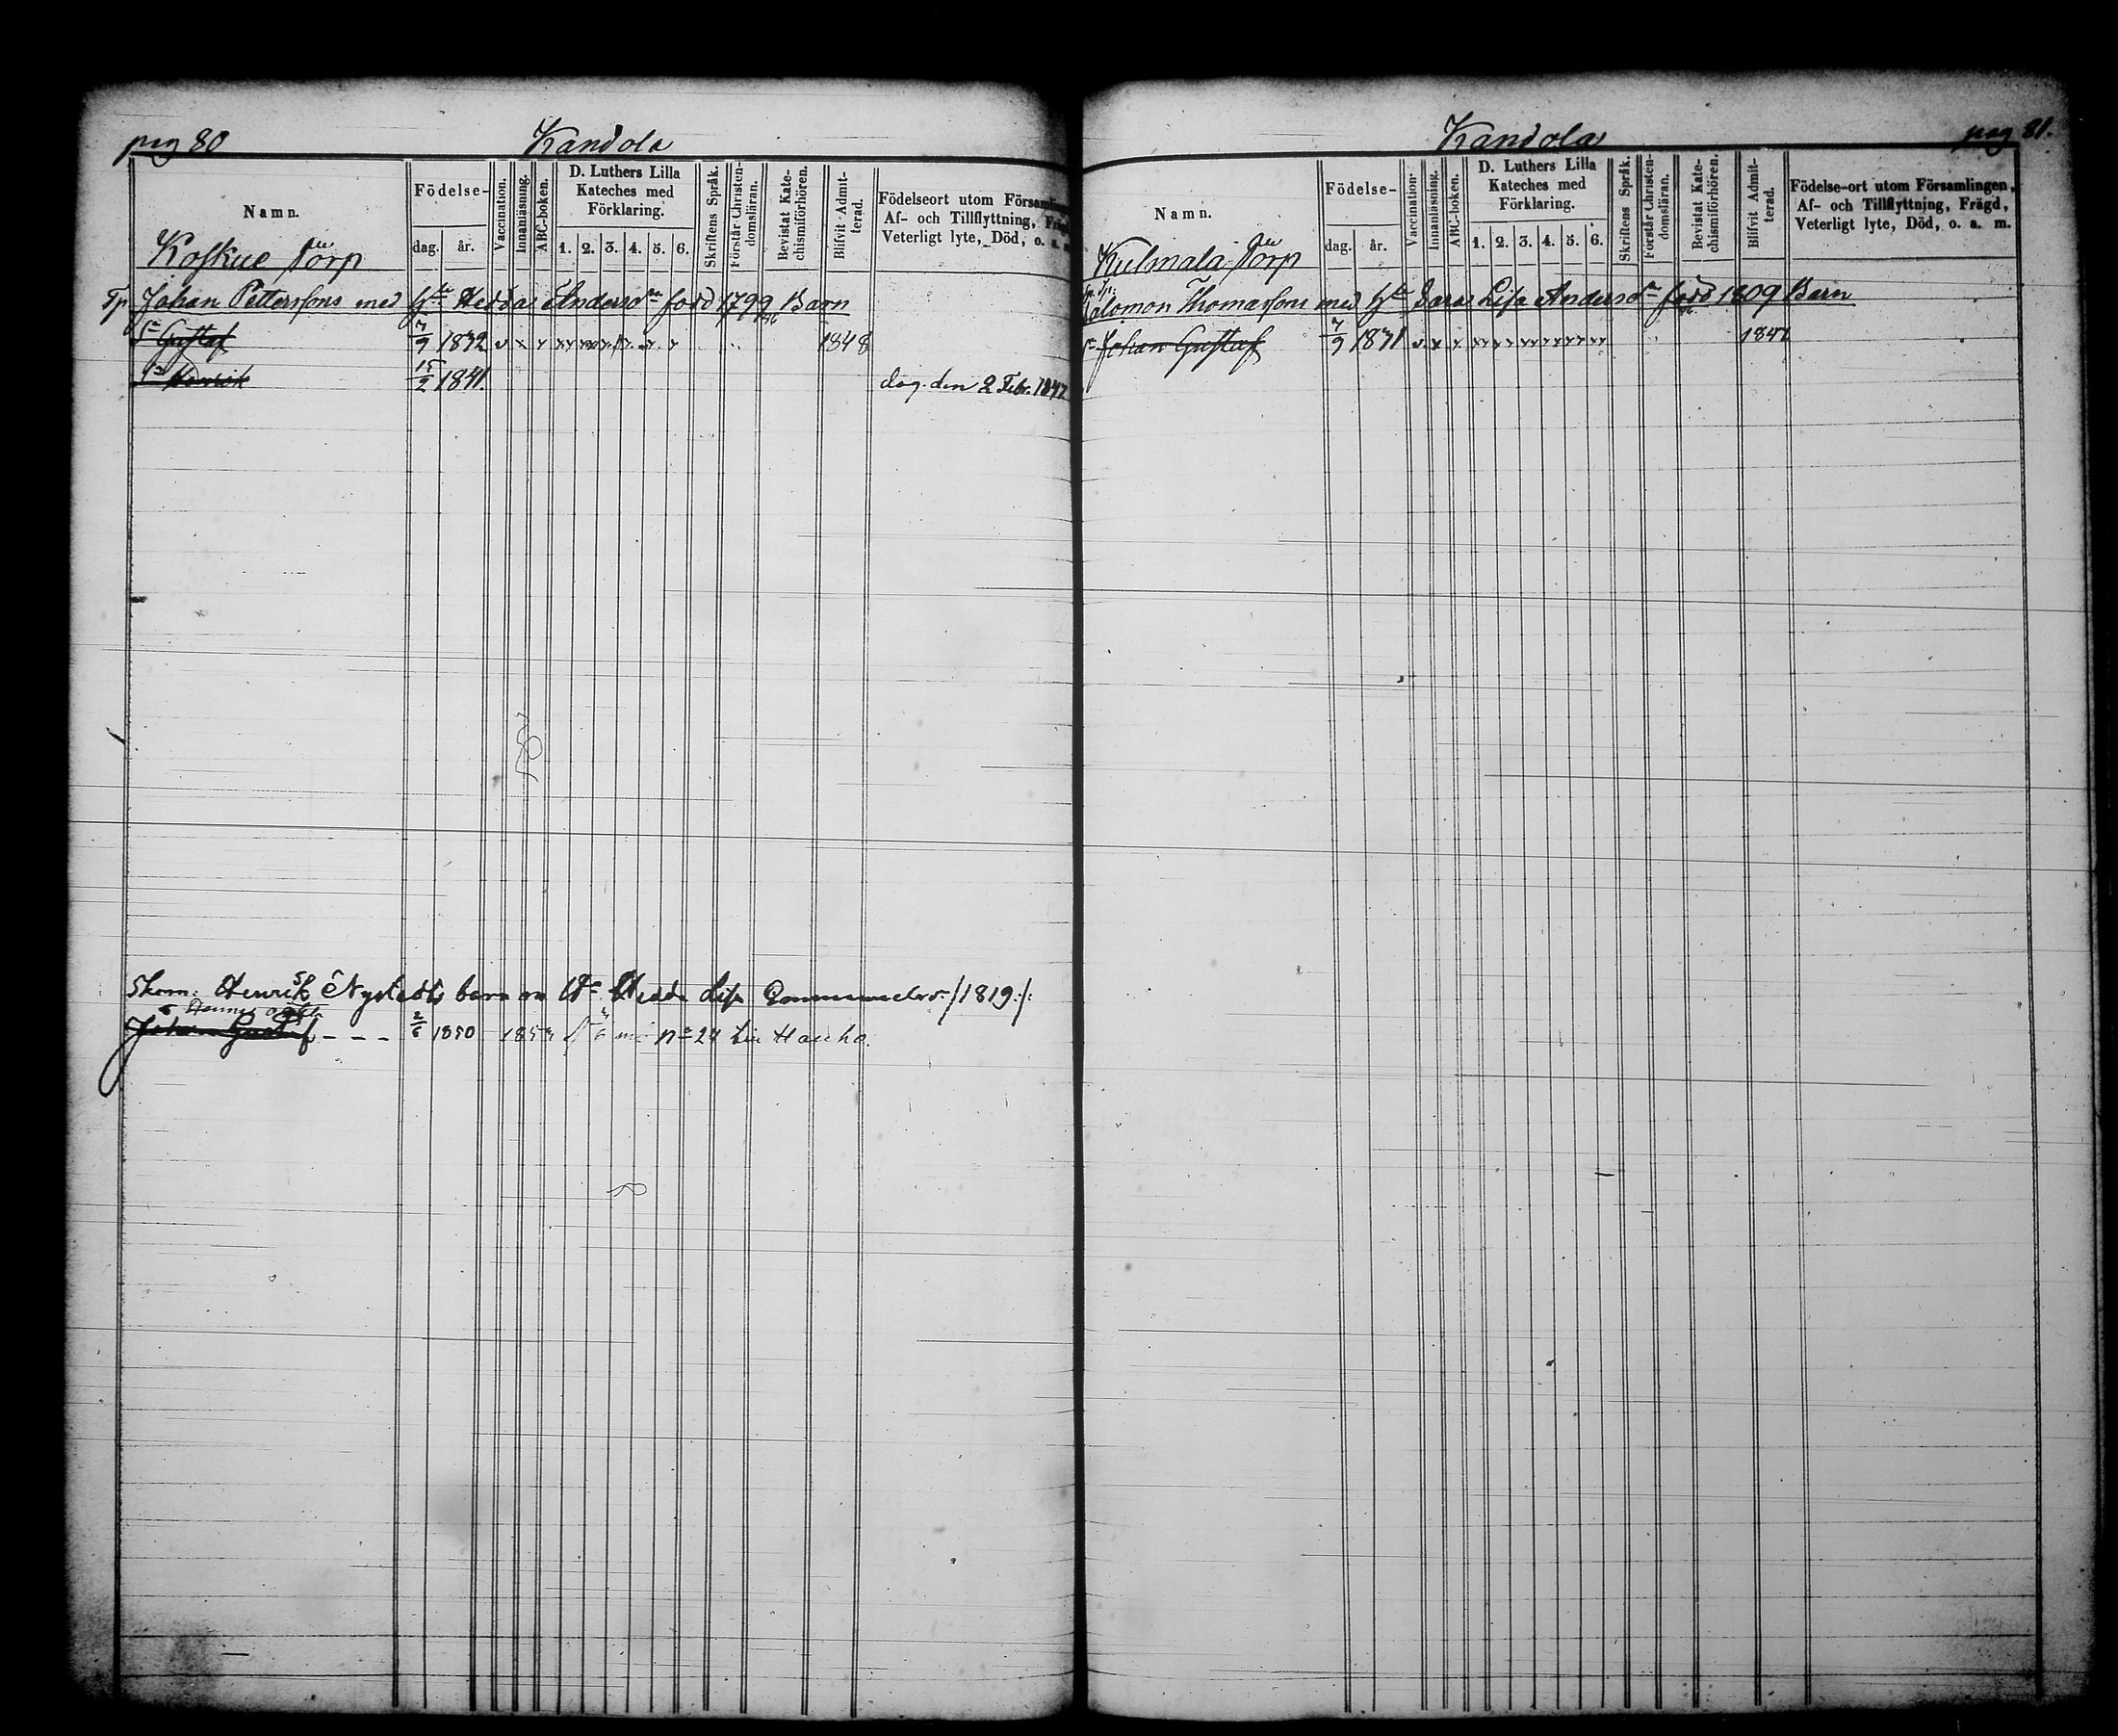 pag 80
Kandola
Namn.
Födelse-
dag. år.
Vaccination.
Innanläsning.
ABC-boken.
D. Luthers Lilla
Kateches med
Förklaring.
1. 2. 3. 4. 5. 6.
Skriftens Språk.
Förstår Christen-
domsläran.
Bevistat Kate-
chismiförhören.
Blifvit Admit-
terad.
Födelseort utom Församlingen
Af- och Tillflyttning, Frägd
Veterligt lyte, Död, o. a. m
Koskue Torp
Tp. Johan Petterssons med Hu Hedda Andersdr född 1799 Barn
Sn Gustaf 7/9 1832 1848
Sn Henrik 15/2 1841. dog. den 2 Febr. 1842
Skom: Henrik Nystedts barn m Hedda Lisa /1819:/:
Johan Gustaf - - - 2/6 1850 1853 n 24 Hauho.
pag 81.
Kandola
Namn.
Födelse-
dag. år.
Vaccination.
Innanläsning.
ABC-boken.
D. Luthers Lilla
Kateches med
Förklaring.
1. 2. 3. 4. 5. 6.
Skriftens Språk.
Förstår Christen-
domsläran.
Bevistat Kate-
chismiförhören.
Blifvit Admit-
terad.
Födelse-ort utom Församlingen,
Af- och Tillflyttning, Frägd,
Veterligt lyte, Död, o. a. m.
Kulmala Torp
Salomon Thomassons med Hu Lisa Andersdr född 1809 Barn
Sn Johan Gustaf 7/9 1831 1847